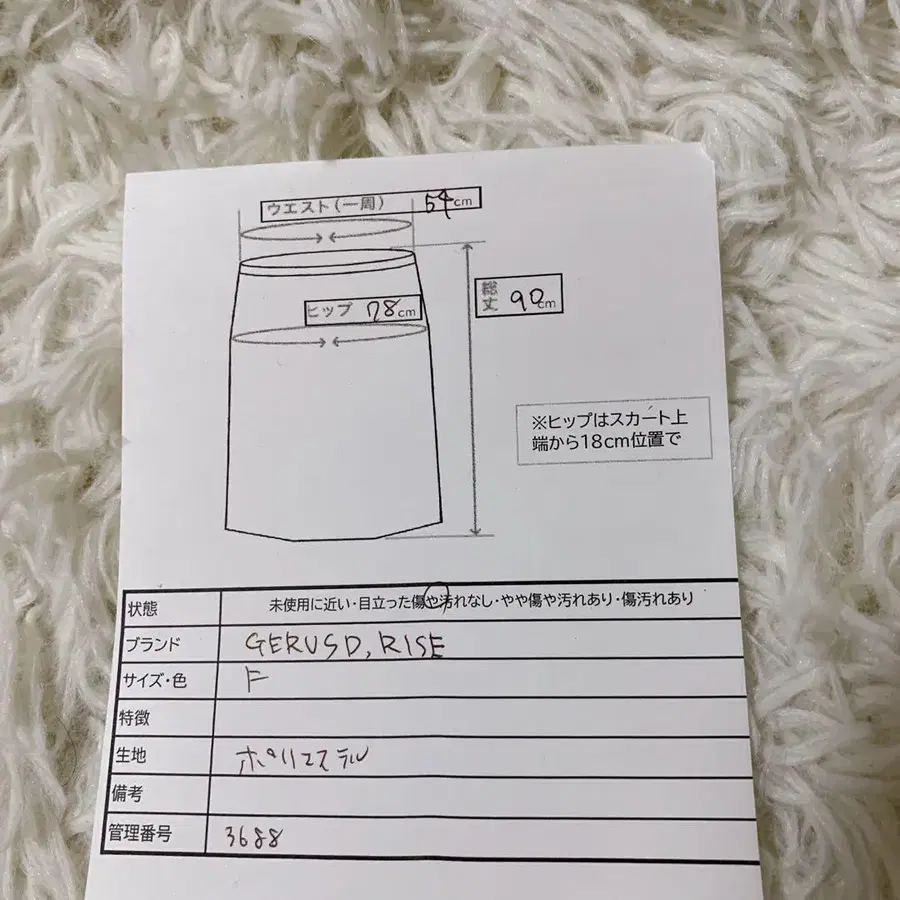 ウエスト(一周) 54cm
ヒップ 78cm
総丈 90cm
※ヒップはスカート上
端から18cm位置で
状態 未使用に近い・目立った傷や汚れなし・やや傷や汚れあり・傷汚れあり
ブランド GERUSD, RISE
サイズ・色 F
特徴
生地 ポリエステル
備考
管理番号 3688